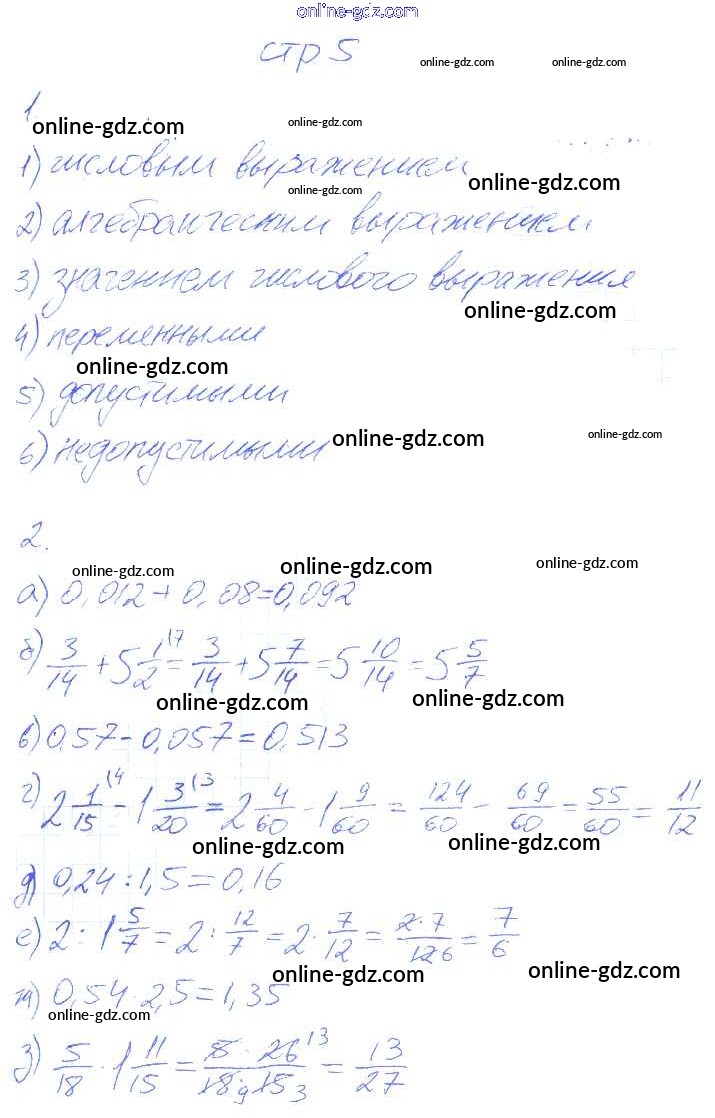 online-gdz.com
стр 5
online-gdz.com online-gdz.com
1
online-gdz.com online-gdz.com
1) числовым выражением
online-gdz.com online-gdz.com
2) алгебраическим выражением
3) значением числового выражения
online-gdz.com
4) переменными
online-gdz.com
5) допустимыми
online-gdz.com online-gdz.com
6) недопустимыми
2.
online-gdz.com online-gdz.com online-gdz.com
а) 0,012 + 0,08 = 0,092
б) 3/14 + 5 1/2 (7 = 3/14 + 5 7/14 = 5 10/14 = 5 5/7
online-gdz.com online-gdz.com
в) 0,57 - 0,057 = 0,513
г) 2 1/15 (4 - 1 3/20 (3 = 2 4/60 - 1 9/60 = 124/60 - 69/60 = 55/60 = 11/12
online-gdz.com online-gdz.com
д) 0,24 : 1,5 = 0,16
е) 2 : 1 5/7 = 2 : 12/7 = 2 · 7/12 = 2·7/12 6 = 7/6
online-gdz.com online-gdz.com
ж) 0,54 · 2,5 = 1,35
online-gdz.com
з) 5/18 · 1 11/15 = 5 · 26 13/18 9 15 3 = 13/27